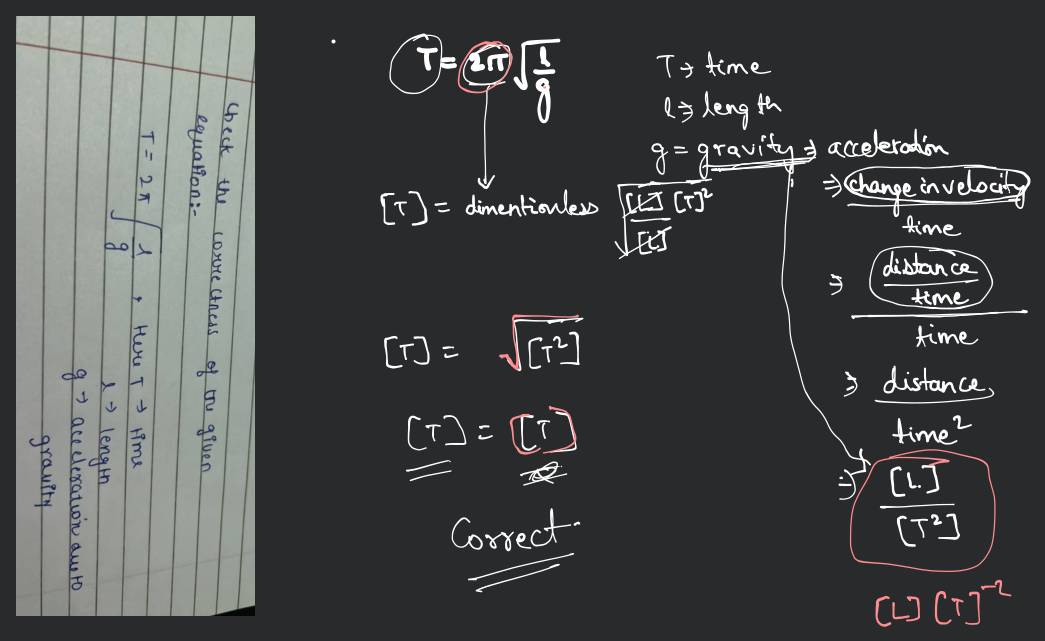 Check the correctness of the given
equation:-
T = 2π √l/g , Here T → time
l → length
g → acceleration due to
gravity
T = 2π √l/g
T → time
l → length
g = gravity ⇒ acceleration
⇒ change in velocity
time
⇒ distance
time
time
⇒ distance
time²
⇒ [L]
[T²]
[L] [T]⁻²
[T] = dimentionless √[L] [T]²
[L]
[T] = √[T²]
[T] = [T]
Correct